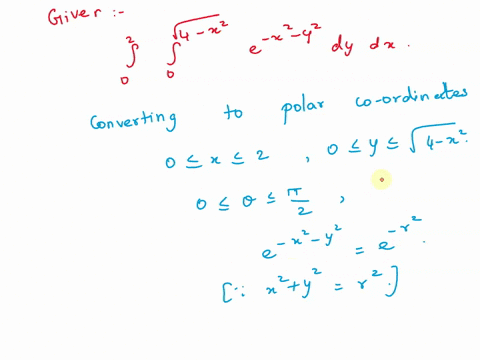 Given :-
∫₀² ∫₀^√(4-x²) e^(-x²-y²) dy dx.
Converting to polar co-ordinates
0 ≤ x ≤ 2 , 0 ≤ y ≤ √(4-x²).
0 ≤ θ ≤ π/2 ,
e^(-x²-y²) = e^(-r²).
[∵ x²+y² = r².]